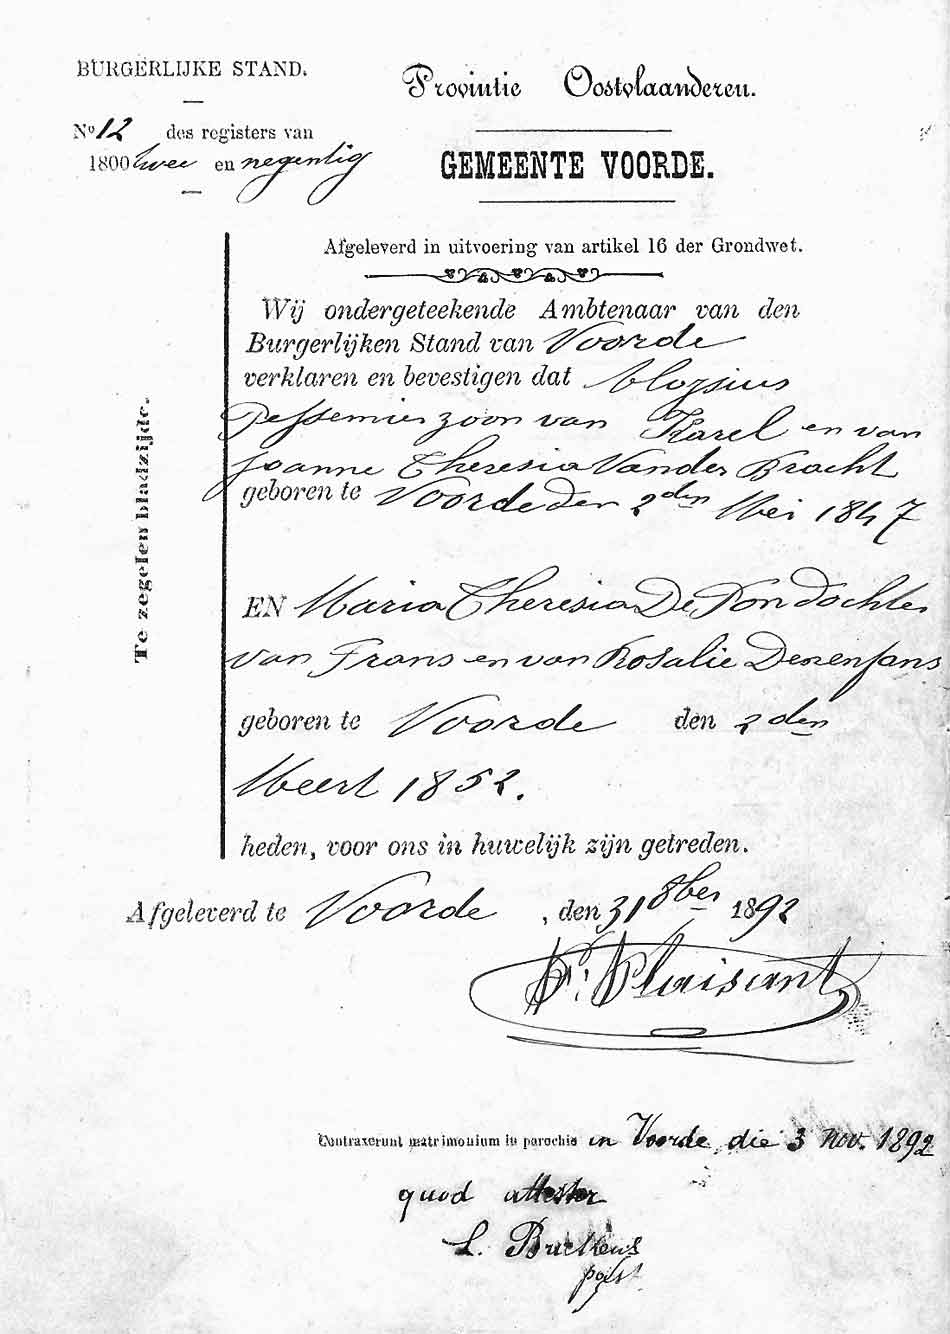 BURGERLIJKE STAND.
Provintie Oostvlaanderen.
No 12 des registers van
1800 twee en negentig
GEMEENTE VOORDE.
Afgeleverd in uitvoering van artikel 16 der Grondwet.
Wij ondergeteekende Ambtenaar van den
Burgerlijken Stand van Voorde
verklaren en bevestigen dat Aloysius
Pessemier zoon van Karel en van
Joanne Theresia Vander Bracht
geboren te Voorde den 2den Mei 1847
EN Maria Theresia De Pon dochter
van Frans en van Rosalie Desenfans
geboren te Voorde den 2den
Meert 1852.
heden, voor ons in huwelijk zijn getreden.
Te zegelen bladzijde.
Afgeleverd te Voorde, den 31 8ber 1892
F. Plaisant
Contraxerunt matrimonium in parochia in Voorde die 3 nov. 1892
quod attestor
L.
past